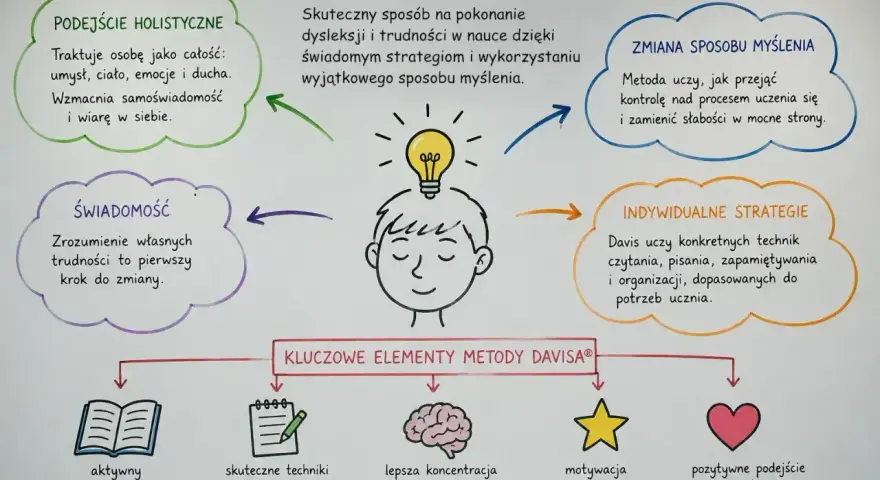 PODEJŚCIE HOLISTYCZNE
Traktuje osobę jako całość:
umysł, ciało, emocje i ducha.
Wzmacnia samoświadomość
i wiarę w siebie.
Skuteczny sposób na pokonanie
dysleksji i trudności w nauce dzięki
świadomym strategiom i wykorzystaniu
wyjątkowego sposobu myślenia.
ZMIANA SPOSOBU MYŚLENIA
Metoda uczy, jak przejąć
kontrolę nad procesem uczenia się
i zamienić słabości w mocne strony.
ŚWIADOMOŚĆ
Zrozumienie własnych
trudności to pierwszy
krok do zmiany.
INDYWIDUALNE STRATEGIE
Davis uczy konkretnych technik
czytania, pisania, zapamiętywania
i organizacji, dopasowanych do
potrzeb ucznia.
KLUCZOWE ELEMENTY METODY DAVISA®
aktywny
skuteczne techniki
lepsza koncentracja
motywacja
pozytywne podejście